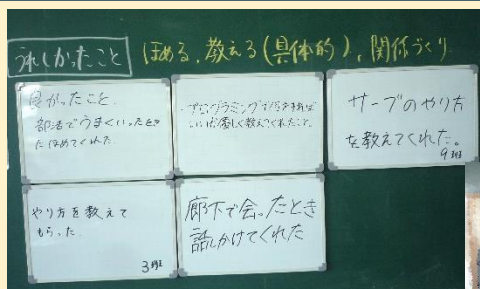 うれしかったこと
ほめる、教える(具体的)、関係づくり
良かったこと
部活でうまくいったとき
ほめてくれた
プログラミングで
優しく教えてくれたこと。
サーブのやり方
を教えてくれた。
9班
やり方を教えて
もらった
3班
廊下で会ったとき
話しかけてくれた